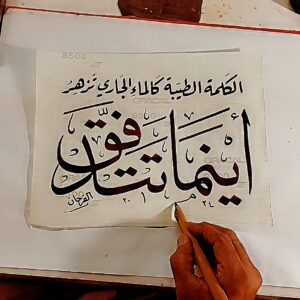 الكلمة الطيبة كالماء الجاري تزهر
أينما تتدفق